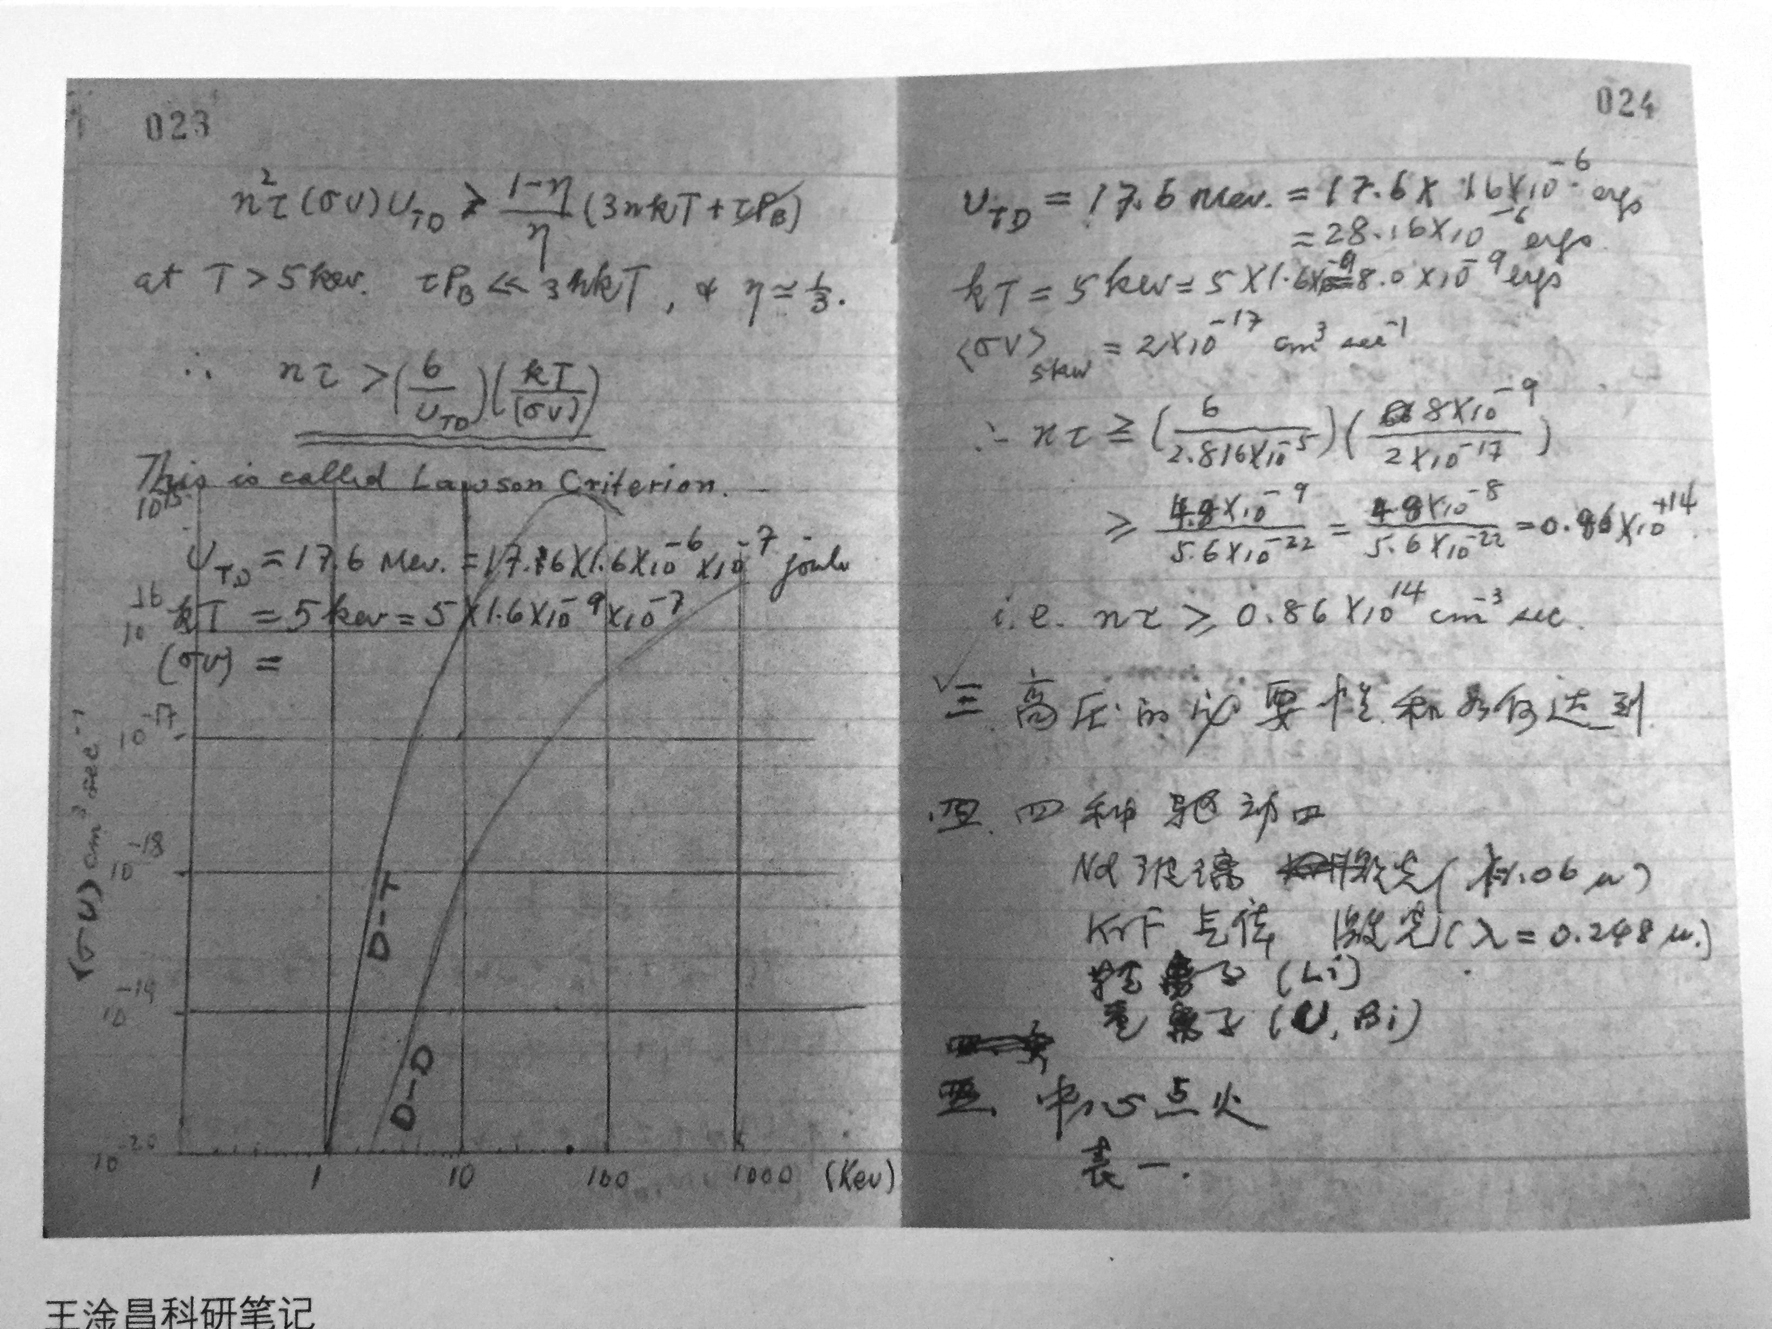 023
n²τ(σv)U_TD ≥ (1-η)/η (3nkT + τP_B)
at T > 5 kev. τP_B ≪ 3nkT, & η ≃ 1/3.
∴ nτ > (6/U_TD)(kT/(σv))
This is called Lawson Criterion.
10^-15
U_TD = 17.6 Mev. = 17.6×1.6×10^-6×10^-7 joule
10^-16
kT = 5 kev = 5×1.6×10^-9×10^-7
(σv) =
10^-17
10^-18
10^-19
10^-20
(σv) cm³ sec^-1
D-T
D-D
1 10 100 1000 (Kev)
024
U_TD = 17.6 Mev. = 17.6× 1.6×10^-6 ergs
= 28.16×10^-6 ergs.
kT = 5 kev = 5×1.6×10^-9 = 8.0×10^-9 ergs
⟨σv⟩_5kev = 2×10^-17 cm³ sec^-1
∴ nτ ≧ (6/2.816×10^-5)(8×10^-9/2×10^-17)
≥ 4.8×10^-9/5.6×10^-22 = 4.8×10^-8/5.6×10^-22 = 0.86×10^+14
i.e. nτ ≥ 0.86×10^14 cm^-3 sec.
√三 高压的必要性和如何达到
四种驱动口
Nd玻璃 激光(1.06μ)
KrF 气体 激光(λ=0.248μ.)
轻离子(Li)
重离子(U, Bi)
五、中心点火
表一.
王淦昌科研笔记